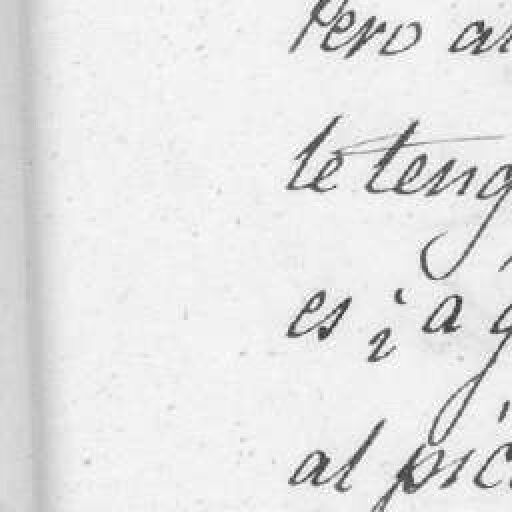 Pero al
te teng
es ¿ a q
al píc